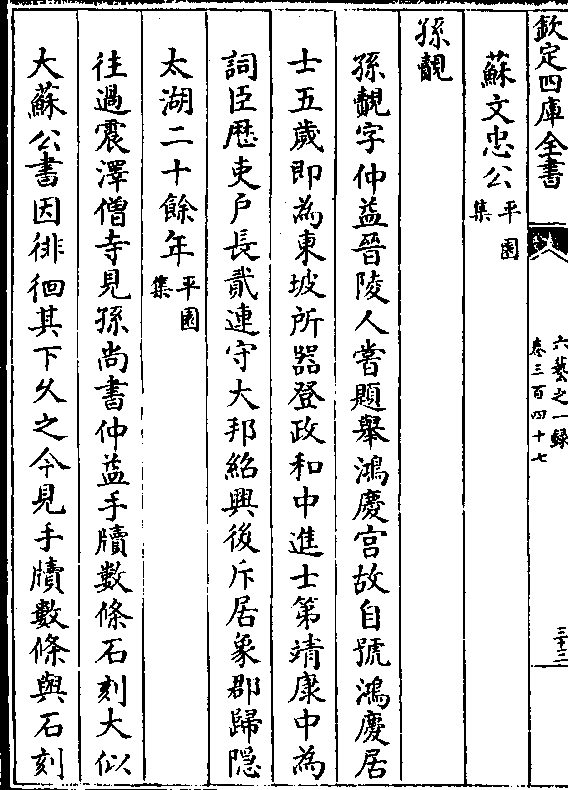 欽定四庫全書
六藝之一錄
卷三百四十七
三十三
蘇文忠公平園集
孫覿
孫覿字仲益晉陵人嘗題舉鴻慶宫故自號鴻慶居
士五歲即為東坡所器登政和中進士第靖康中為
詞臣歷吏戶長貳連守大邦紹興後斥居象郡歸隠
太湖二十餘年平園集
往過震澤僧寺見孫尚書仲益手牘數條石刻大似
大蘇公書因徘徊其下乆之今見手牘數條與石刻